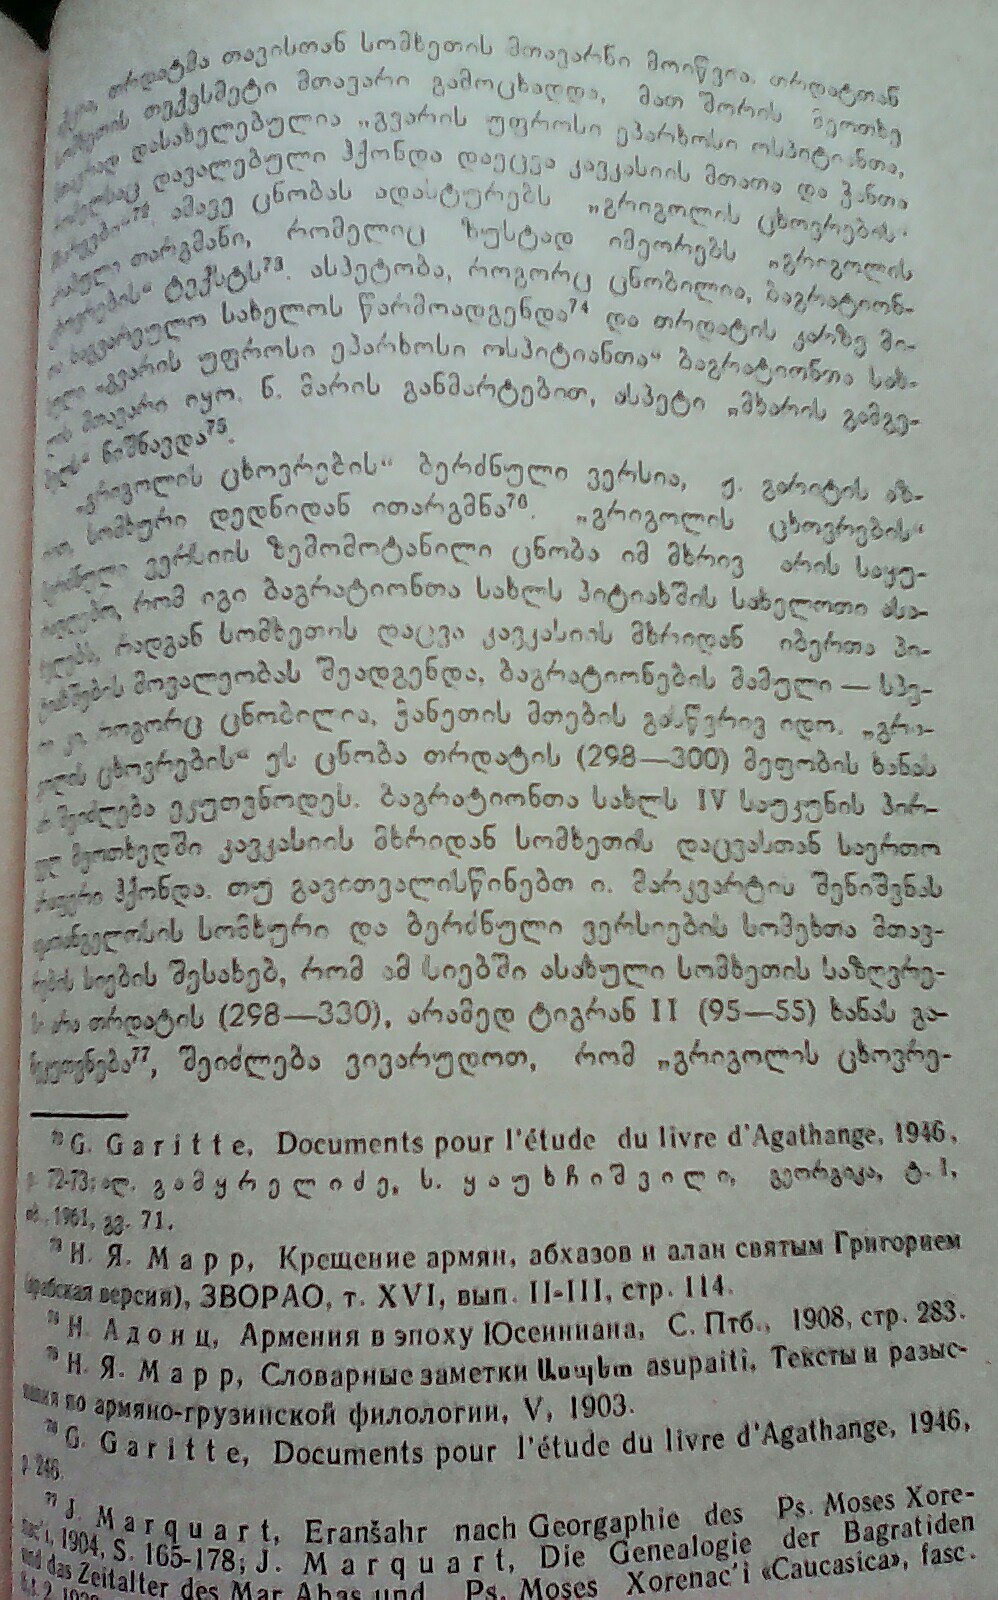 თრდატმა თავისთან სომხეთის მთავარნი მოიწვია. თრდატთან
თექვსმეტი მთავარი გამოცხადდა, მათ შორის მეოთხე
დასახელებულია „გვარის უფროსი ეპარხოსი ოსპიტიანთა,
დავალებული ჰქონდა დაეცვა კავკასიის მთათა და ჭანთა
ამავე ცნობას ადასტურებს „გრიგოლის ცხოვრების“
თარგმანი, რომელიც ზუსტად იმეორებს „გრიგოლის
ტექსტს⁷³. ასპეტობა, როგორც ცნობილია, ბაგრატიონ-
საგვარეულო სახელოს წარმოადგენდა⁷⁴ და თრდატის კარზე მი-
„გვარის უფროსი ეპარხოსი ოსპიტიანთა“ ბაგრატიონთა სახ-
მთავარი იყო. ნ. მარის განმარტებით, ასპეტი „მხარის გამგე-
ნიშნავდა⁷⁵.
„გრიგოლის ცხოვრების“ ბერძნული ვერსია, ჟ. გარიტის აზ-
სომხური დედნიდან ითარგმნა⁷⁶. „გრიგოლის ცხოვრების“
ვერსიის ზემომოტანილი ცნობა იმ მხრივ არის საყუ-
რომ იგი ბაგრატიონთა სახლს პიტიახშის სახელოთი ასა-
რადგან სომხეთის დაცვა კავკასიის მხრიდან იბერთა პი-
მოვალეობას შეადგენდა. ბაგრატიონების მამული — სპე-
როგორც ცნობილია, ჭანეთის მთების გასწვრივ იდო. „გრი-
ცხოვრების“ ეს ცნობა თრდატის (298—300) მეფობის ხანას
შეიძლება ეკუთვნოდეს. ბაგრატიონთა სახლს IV საუკუნის პირ-
მეოთხედში კავკასიის მხრიდან სომხეთის დაცვასთან საერთო
ჰქონდა. თუ გავითვალისწინებთ ი. მარკვარტის შენიშვნას
სომხური და ბერძნული ვერსიების სომეხთა მთავ-
სიების შესახებ, რომ ამ სიებში ასახული სომხეთის საზღვრე-
არა თრდატის (298—330), არამედ ტიგრან II (95—55) ხანას გა-
შეიძლება ვივარუდოთ, რომ „გრიგოლის ცხოვრე-
G. Garitte, Documents pour l'étude du livre d'Agathange, 1946,
p. 72-73; ალ. გამყრელიძე, ს. ყაუხჩიშვილი, გეორგიკა, ტ. I,
1961, გვ. 71.
⁷³ Н. Я. Марр, Крещение армян, абхазов и алан святым Григорием
(арабская версия), ЗВОРАО, т. XVI, вып. II-III, стр. 114.
Н. Адонц, Армения в эпоху Юсеиниана, С. Птб., 1908, стр. 283.
Н. Я. Марр, Словарные заметки Ասպետ asupaiti, Тексты и разыс-
по армяно-грузинской филологии, V, 1903.
G. Garitte, Documents pour l'étude du livre d'Agathange, 1946,
p. 246.
⁷⁷ J. Marquart, Eranšahr nach Georgaphie des Ps. Moses Xore-
nac'i, 1904, S. 165-178; J. Marquart, Die Genealogie der Bagratiden
und das Zeitalter des Mar Abas und Ps. Moses Xorenac'i «Caucasica», fasc.